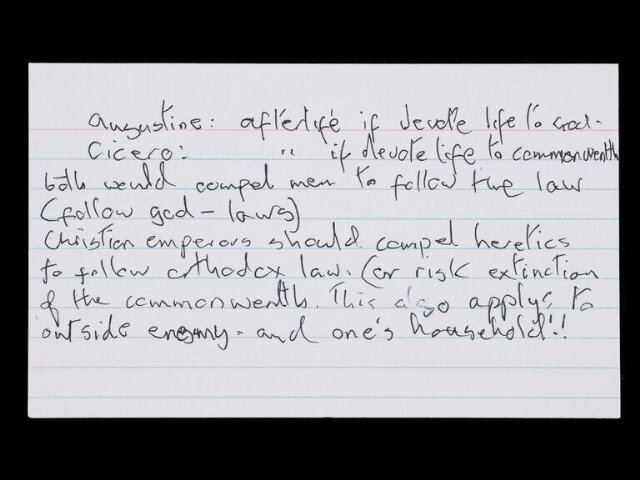 Augustine: afterlife if devote life to God.
Cicero: " if devote life to commonwealth
both would compel men to follow the law
(follow god - laws)
Christian emperors should compel heretics
to follow orthodox law. (or risk extinction
of the commonwealth. This also applys to
outside enemy. and one's household!!